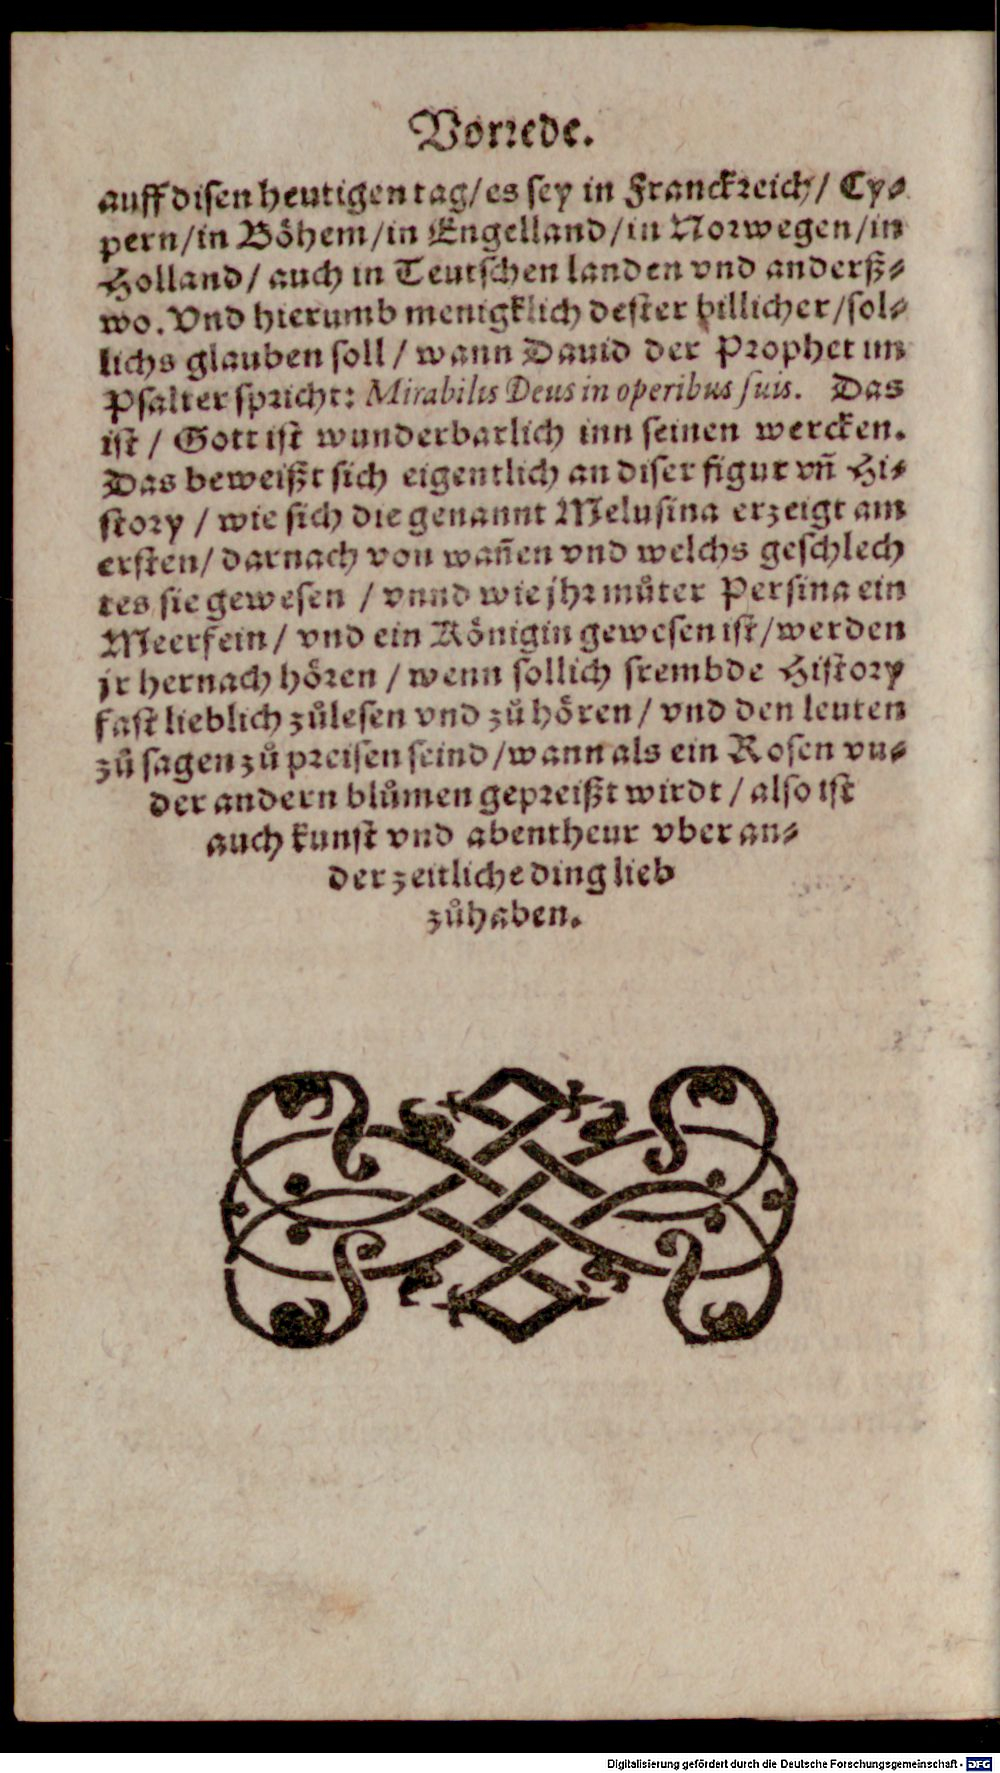 Vorrede.
auff disen heutigen tag/ es sey in Franckreich/ Cy⸗
pern/in Böhem/in Engelland/in Norwegen/in
Holland/ auch in Teutschen landen vnd anderß⸗
wo. Vnd hierumb menigklich dester billicher/sol⸗
lichs glauben soll / wann Dauid der Prophet im
Psalter spricht: Mirabilis Deus in operibus suis. Das
ist / Gott ist wunderbarlich inn seinen wercken.
Das beweißt sich eigentlich an diser figur vñ Hi⸗
story / wie sich die genannt Melusina erzeigt am
ersten/ darnach von wañen vnd welchs geschlech
tes sie gewesen / vnnd wie jhr můter Persina ein
Meerfein/ vnd ein Königin gewesen ist/werden
jr hernach hören / wenn sollich frembde History
fast lieblich zůlesen vnd zů hören/ vnd den leuten
zů sagen zů preisen seind/wann als ein Rosen vn⸗
der andern blůmen gepreißt wirdt / also ist
auch kunst vnd abentheur vber an⸗
der zeitliche ding lieb
zůhaben.
Digitalisierung gefördert durch die Deutsche Forschungsgemeinschaft - DFG